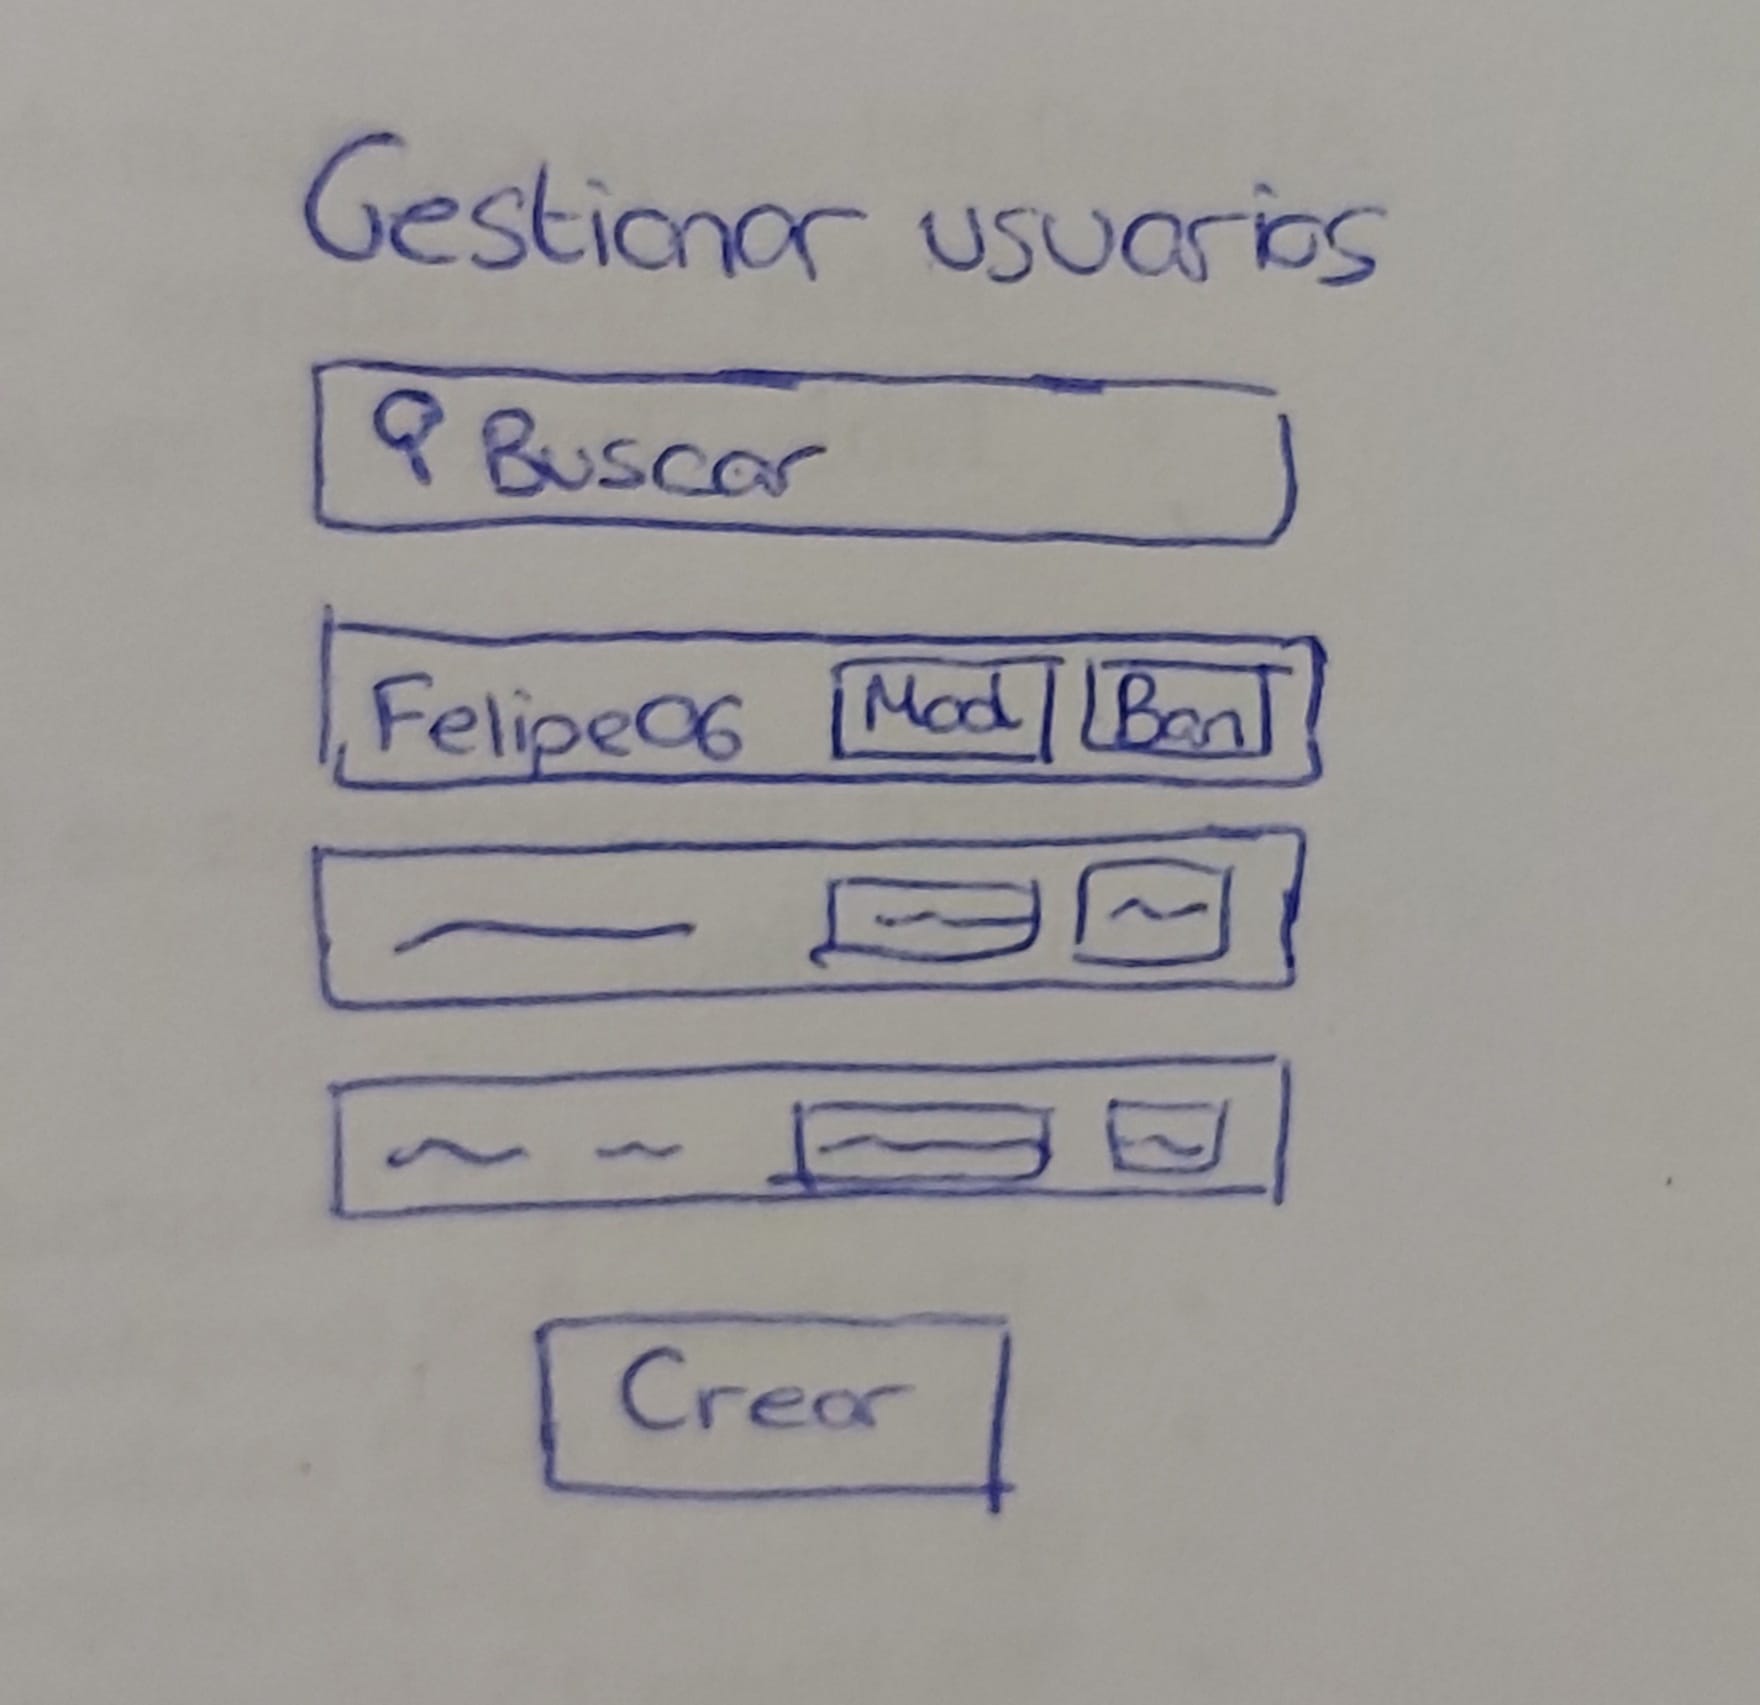 Gestionar usuarios
Buscar
Felipe06 Mod Ban
Crear